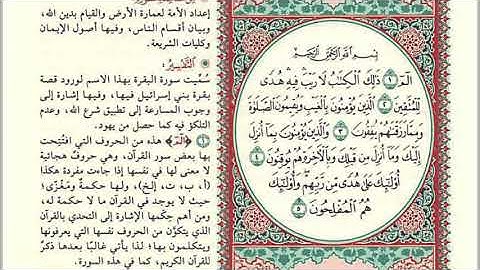 بِسْمِ ٱللَّهِ ٱلرَّحْمَٰنِ ٱلرَّحِيمِ
الٓمٓ ١ ذَٰلِكَ ٱلْكِتَٰبُ لَا رَيْبَ فِيهِ هُدًى
لِّلْمُتَّقِينَ ٢ ٱلَّذِينَ يُؤْمِنُونَ بِٱلْغَيْبِ وَيُقِيمُونَ ٱلصَّلَوٰةَ
وَمِمَّا رَزَقْنَٰهُمْ يُنفِقُونَ ٣ وَٱلَّذِينَ يُؤْمِنُونَ بِمَآ أُنزِلَ
إِلَيْكَ وَمَآ أُنزِلَ مِن قَبْلِكَ وَبِٱلْءَاخِرَةِ هُمْ يُوقِنُونَ ٤
أُو۟لَٰٓئِكَ عَلَىٰ هُدًى مِّن رَّبِّهِمْ وَأُو۟لَٰٓئِكَ
هُمُ ٱلْمُفْلِحُونَ ٥
إعداد الأمة لعمارة الأرض والقيام بدين الله،
وبيان أقسام الناس، وفيها أصول الإيمان
وكليات الشريعة.
التَّفْسِيرُ
سُمِّيت سورة البقرة بهذا الاسم لورود قصة
بقرة بني إسرائيل فيها، وفيها إشارة إلى
وجوب المسارعة إلى تطبيق شرع الله، وعدم
التلكؤ فيه كما حصل من يهود.
١ ﴿الٓمٓ﴾ هذه من الحروف التي افتُتِحت
بها بعض سور القرآن، وهي حروف هجائية
لا معنى لها في نفسها إذا جاءت مفردة هكذا
(أ، ب، ت، إلخ)، ولها حكمة ومغزًى؛
حيث لا يوجد في القرآن ما لا حكمة له،
ومن أهم حِكَمها الإشارة إلى التحدي بالقرآن
الذي يتكون من الحروف نفسها التي يعرفونها
ويتكلمون بها؛ لذا يأتي غالبًا بعدها ذكرٌ
للقرآن الكريم، كما في هذه السورة.